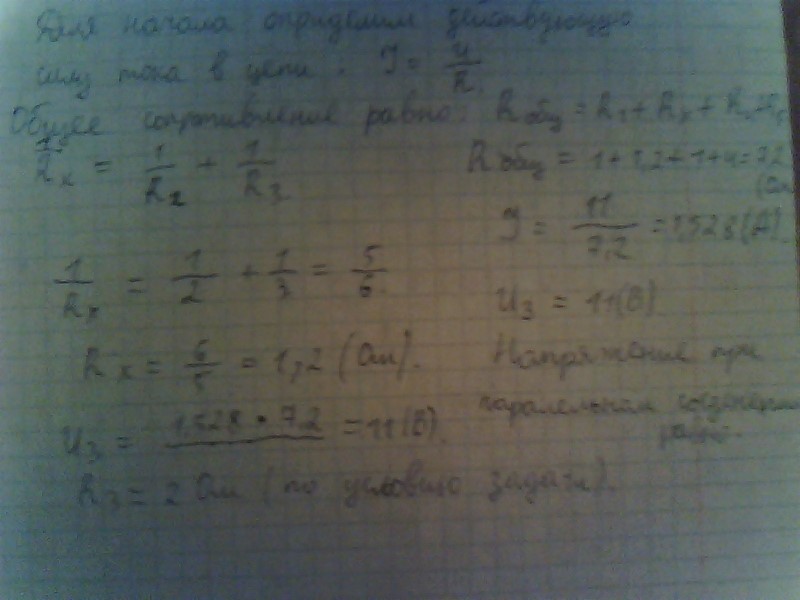 Для начала определим действующую
силу тока в цепи. I = U/R.
Общее сопротивление равно: Rобщ = R1 + Rx +
1/Rx = 1/R2 + 1/R3
Rобщ = 1+1,2+1+4=7,2 (Ом
I = 11/7,2 = 1,528 (А)
1/Rx = 1/2 + 1/3 = 5/6.
U3 = 11(В)
Rx = 6/5 = 1,2 (Ом).
Напряжение при
паралельном соединении
равно.
U3 = 1,528 • 7,2 = 11(В).
R3 = 2 Ом (по условию задачи).